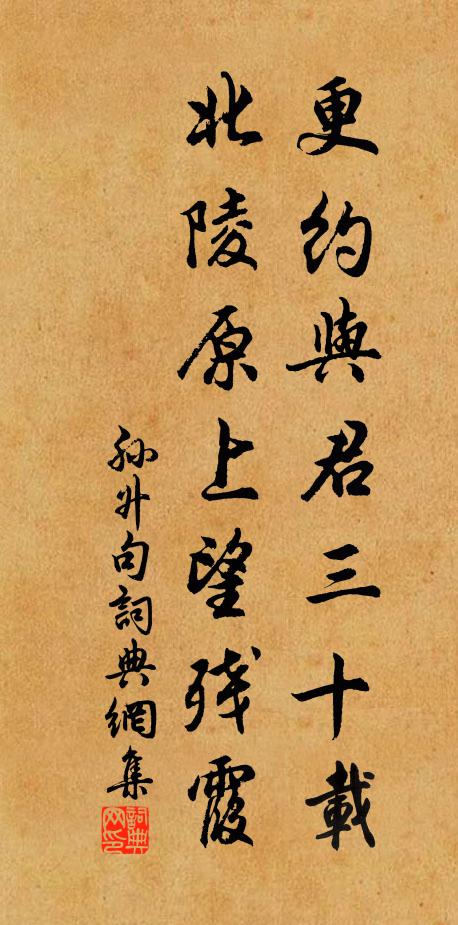 更约與君三十載
北陵原上望残霞
孙升句詞典網集
詞典网印